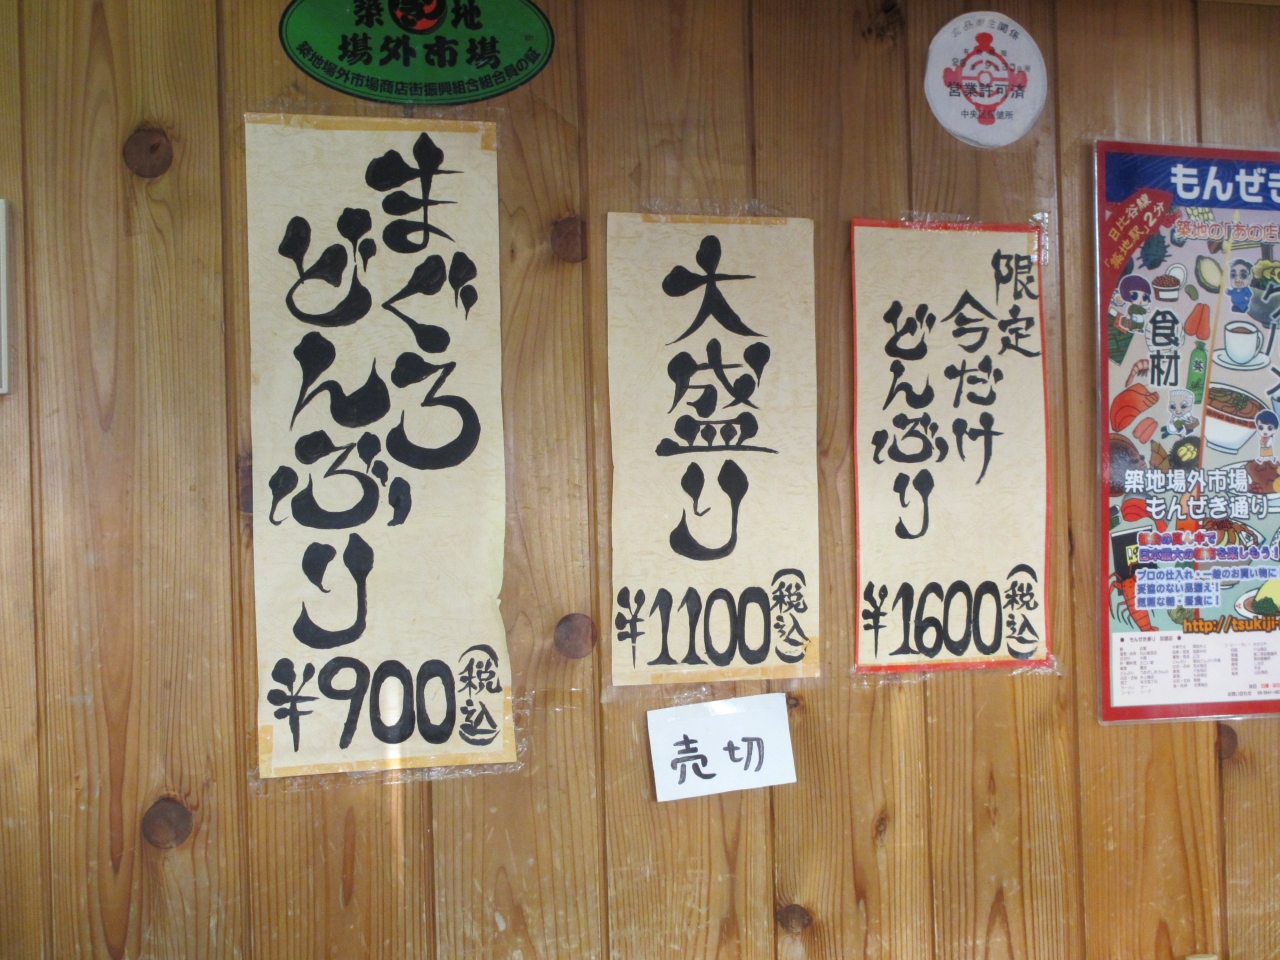 築地
場外市場
築地場外市場商店街振興組合組合員の証
営業許可済
まぐろ
どんぶり
¥900(税込)
大盛り
¥1100(税込)
売切
限定
今だけ
どんぶり
¥1600(税込)
もんぜき
日比谷線
「築地駅」2分
築地の「あの店
食材
築地場外市場
もんぜき通り
プロの仕入れ・一般のお買い物に
妥協のない品揃え!
http://tsukiji-